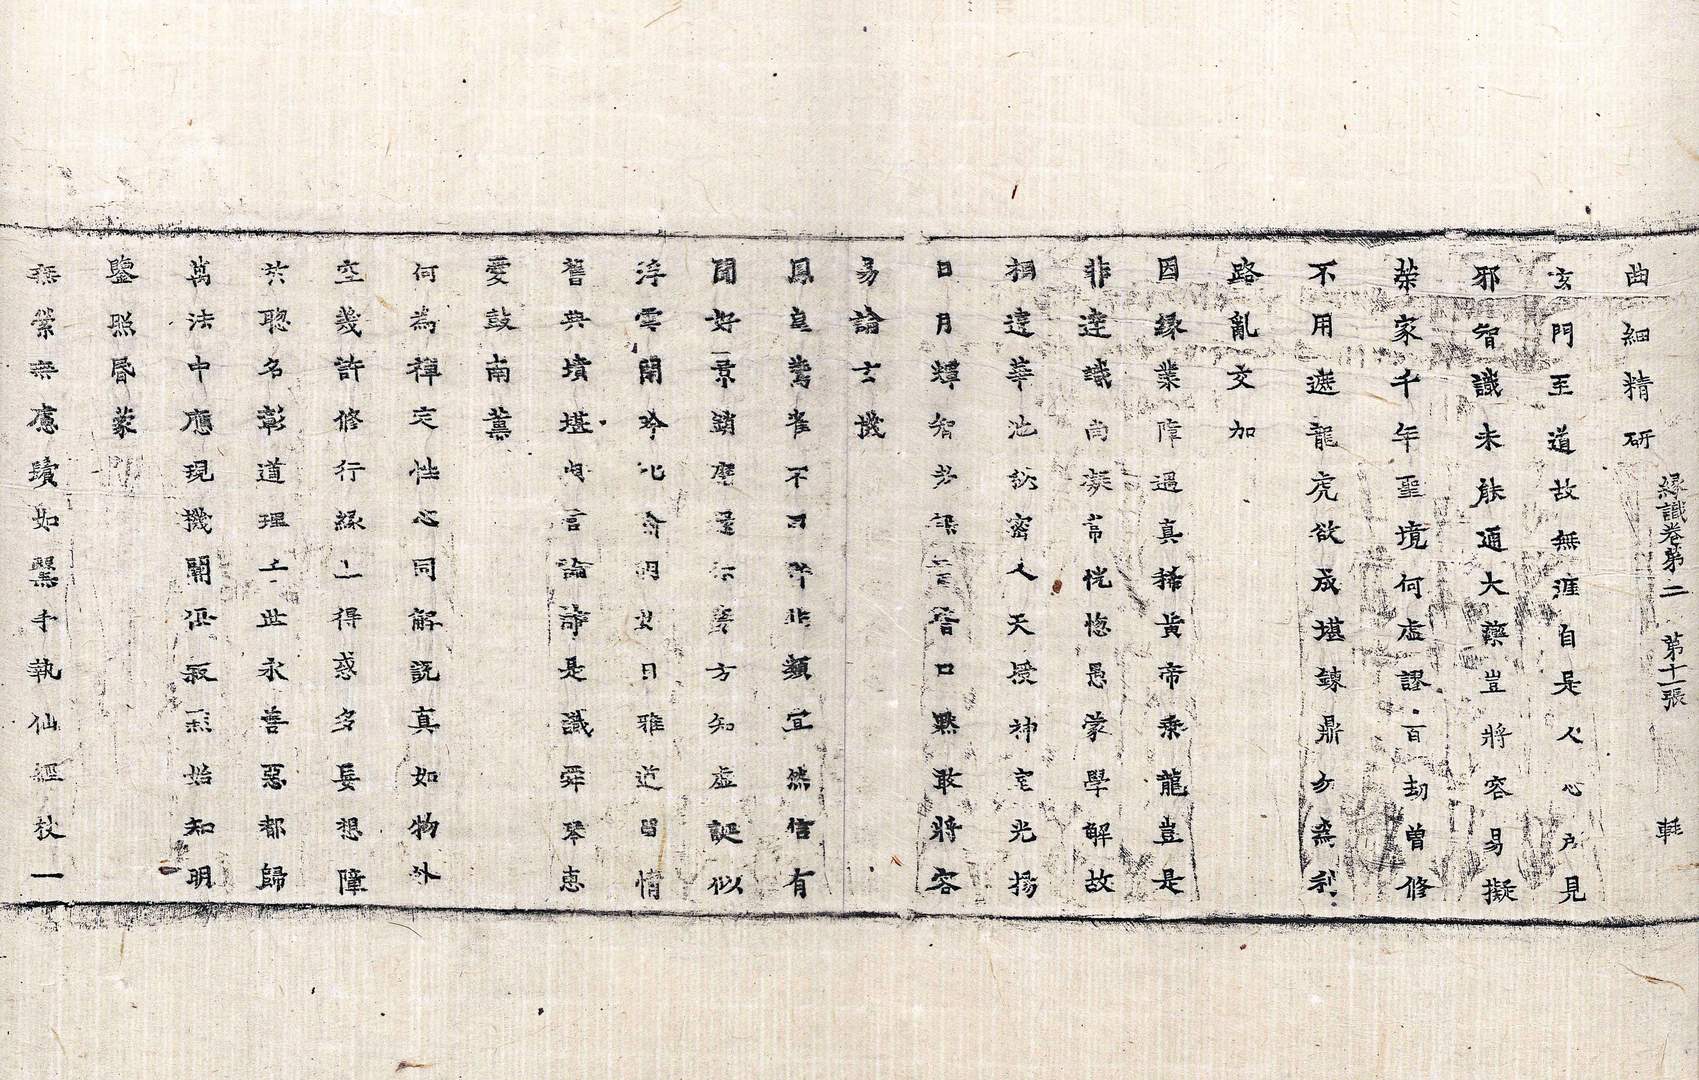 曲細精研
緣識卷第二 第十一張 軽
玄門至道故無涯自是人心戶見
邪智識未能通大藥豈將容易擬
榮家千年聖境何虛謬百劫曾修
不用遮龍虎欲成堪鍊鼎勿為利
路亂交加
因緣業障過真稀黃帝乘龍豈是
非達識尚凝常恍惚愚蒙學解故
相違華池祕密人天授神室光揚
日月 智 口默敢將容
易論玄機
鳳皇鷲雀不 類宜然信有
聞好景銷磨 方知虛誕似
浮雲開 日雅道習情
舊典墳堪 言論諦是識舜琴惠
愛鼓南薰
何為禪定性心同解說真如物外
空幾許修行緣上得惑多妄想障
於聰名彰道理 世永善惡都歸
萬法中應現機關 寂 始知明
鑒照昏蒙
無縈無慮 如 手執仙經杖一